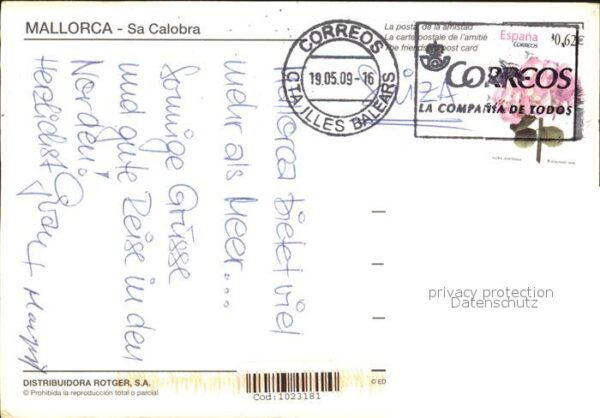 MALLORCA - Sa Calobra
La postal de la amistad
La carte postale de l'amitié
The friendship post card
CORREOS
19.05.09-16
CTA/ILLES BALEARS
España
CORREOS
0,62€
CORREOS
LA COMPAÑIA DE TODOS
SUIZA
Mallorca bietet viel
mehr als Meer...
Sonnige Grüsse
und gute Reise in den
Norden!
Herzlichst
privacy protection
Datenschutz
DISTRIBUIDORA ROTGER, S.A.
© Prohibida la reproducción total o parcial
© ED
Cod:1023181